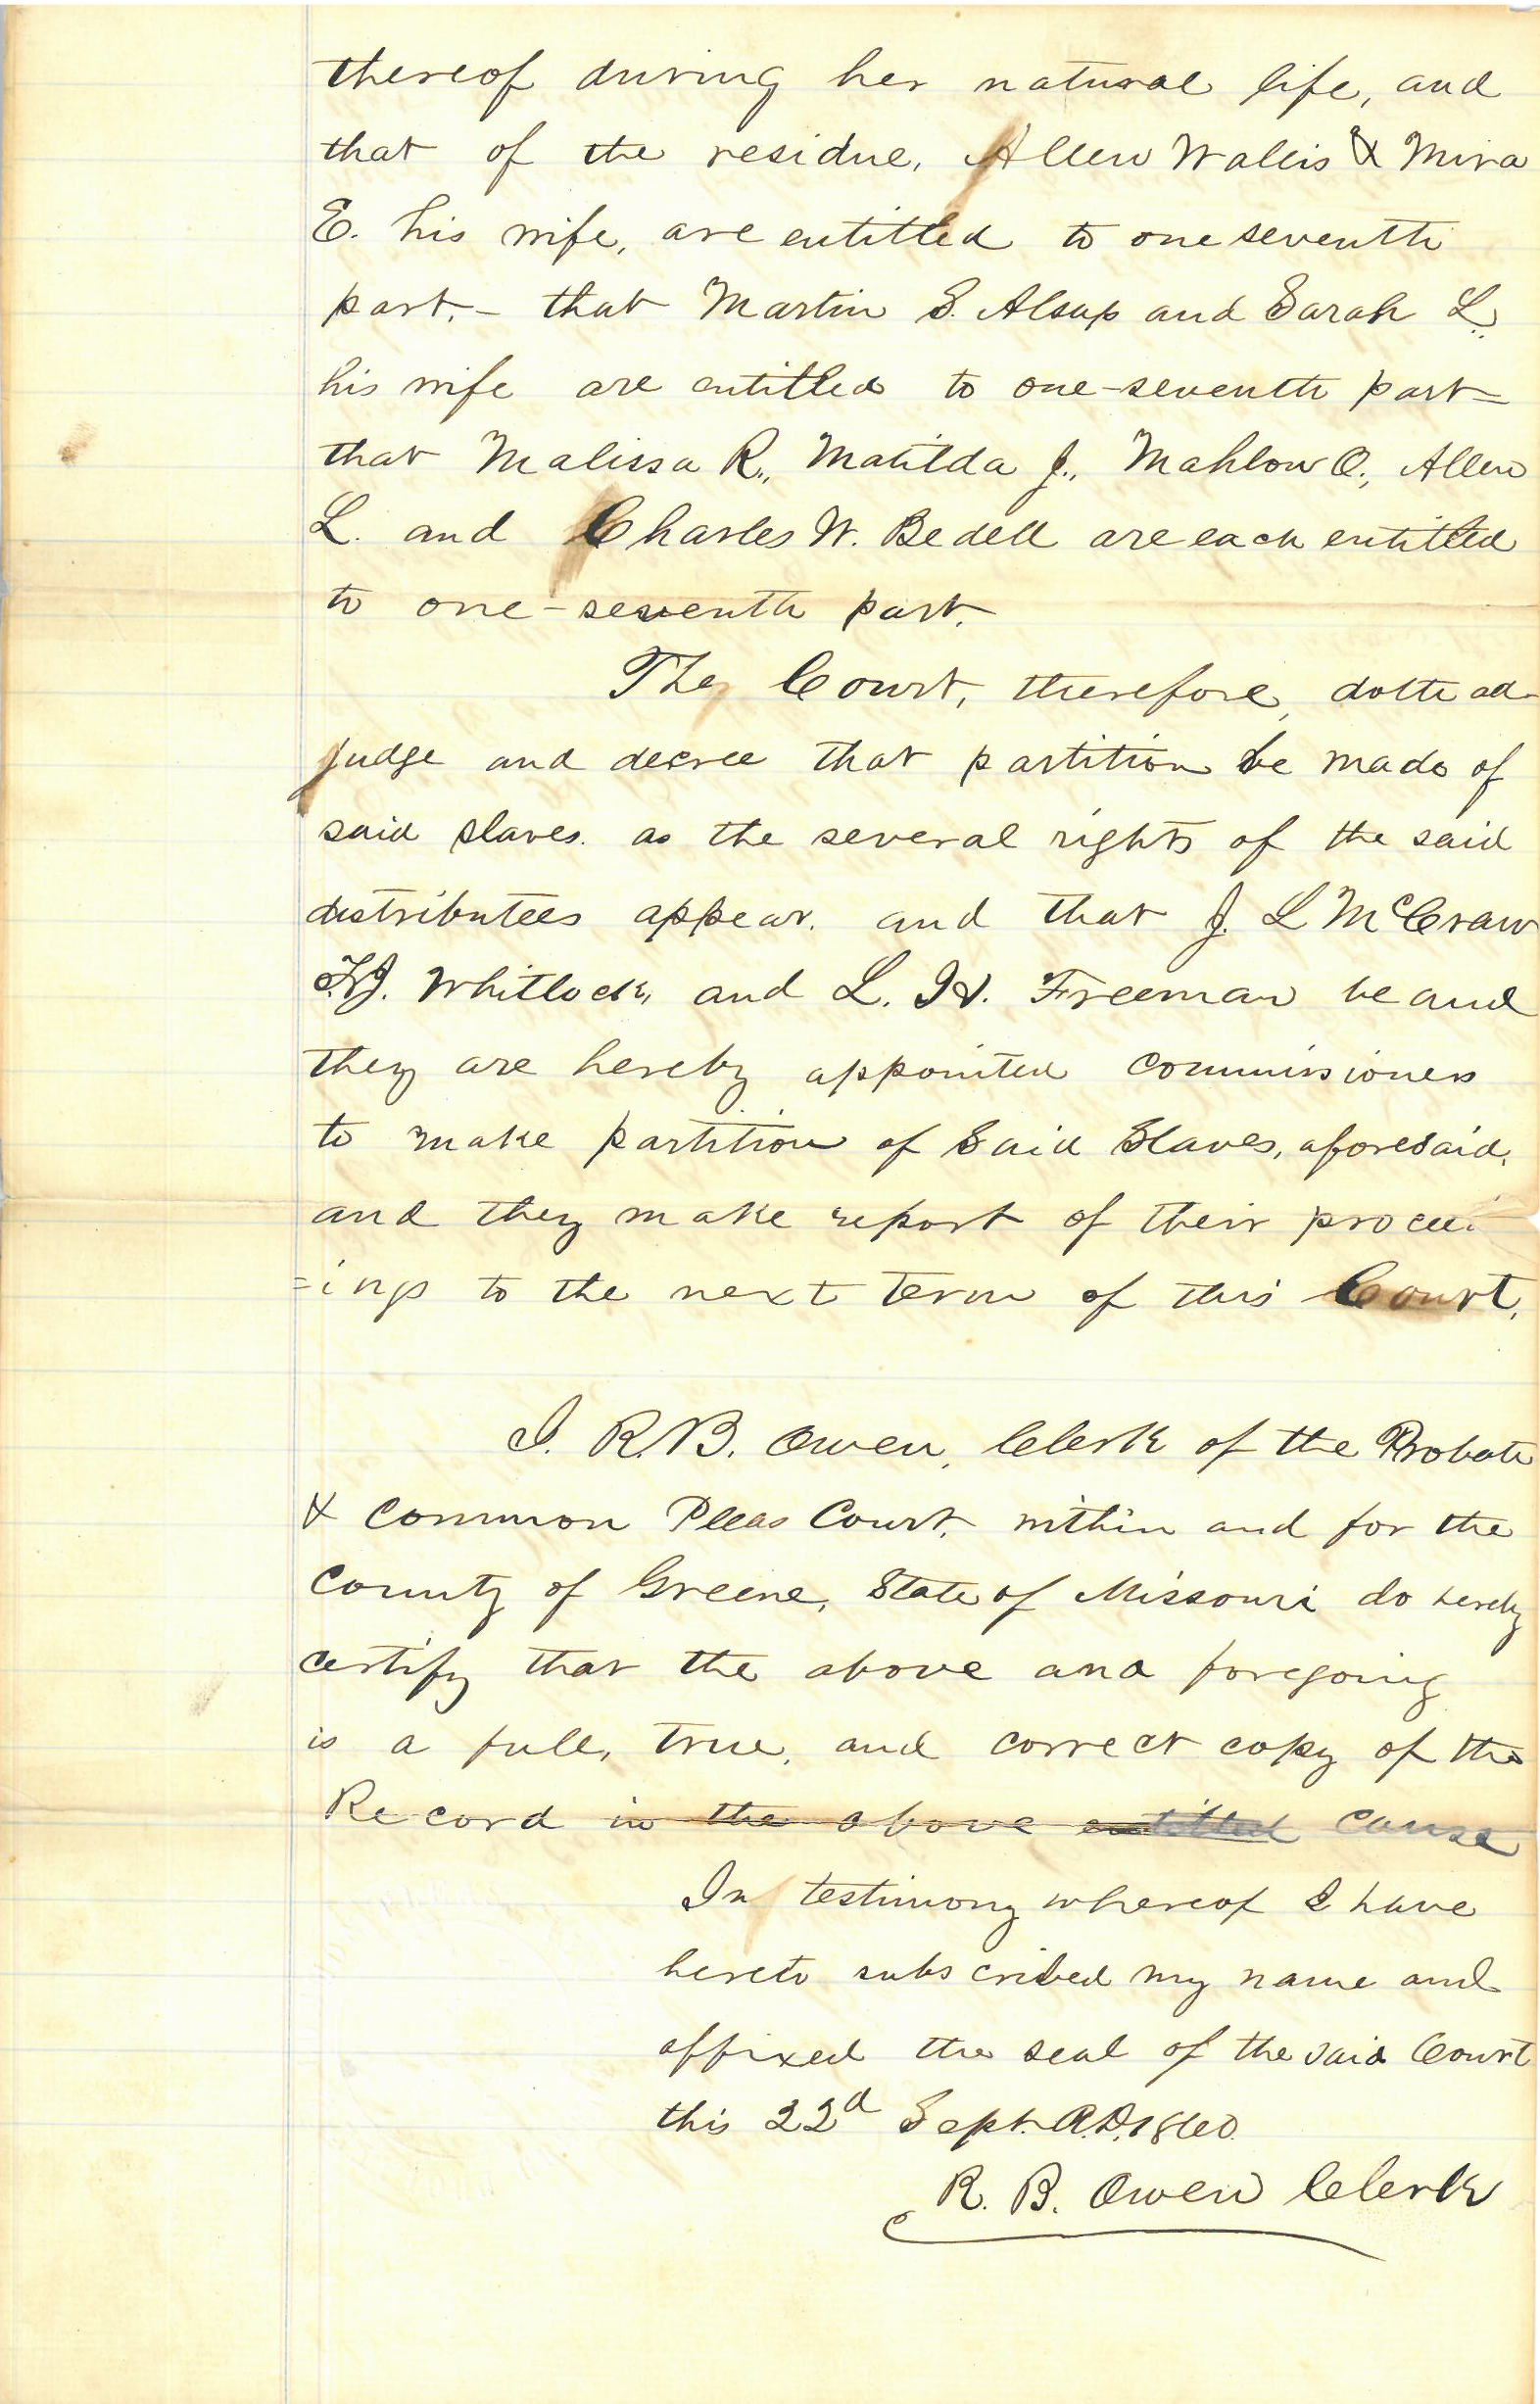 thereof during her natural life, and
that of the residue, Allen Wallis & Mira
E. his wife, are entitled to one seventh
part,- that Martin S. Alsup and Sarah L.
his wife are entitled to one-seventh part-
that Malissa R., Matilda J., Mahlon O., Allen
L. and Charles W. Bedell are each entitled
to one-seventh part.
The Court, therefore, doth ad-
judge and decree that partition be made of
said slaves. as the several rights of the said
distributees appear. and that J. L McCraw
Whitlock, and L. H. Freeman be and
they are hereby appointed commissioners
to make partition of said Slaves, aforesaid,
and they make report of their proceed
=ings to the next term of this Court.
I. R. B. Owen, Clerk of the Probate
& Common Pleas Court, within and for the
County of Greene, State of Missouri do hereby
certify that the above and foregoing
is a full, true, and correct copy of the
Record in the above entitled cause
In testimony whereof I have
hereto subscribed my name and
affixed the seal of the said Court
this 22d Sept. A.D. 1860.
R. B. Owen Clerk